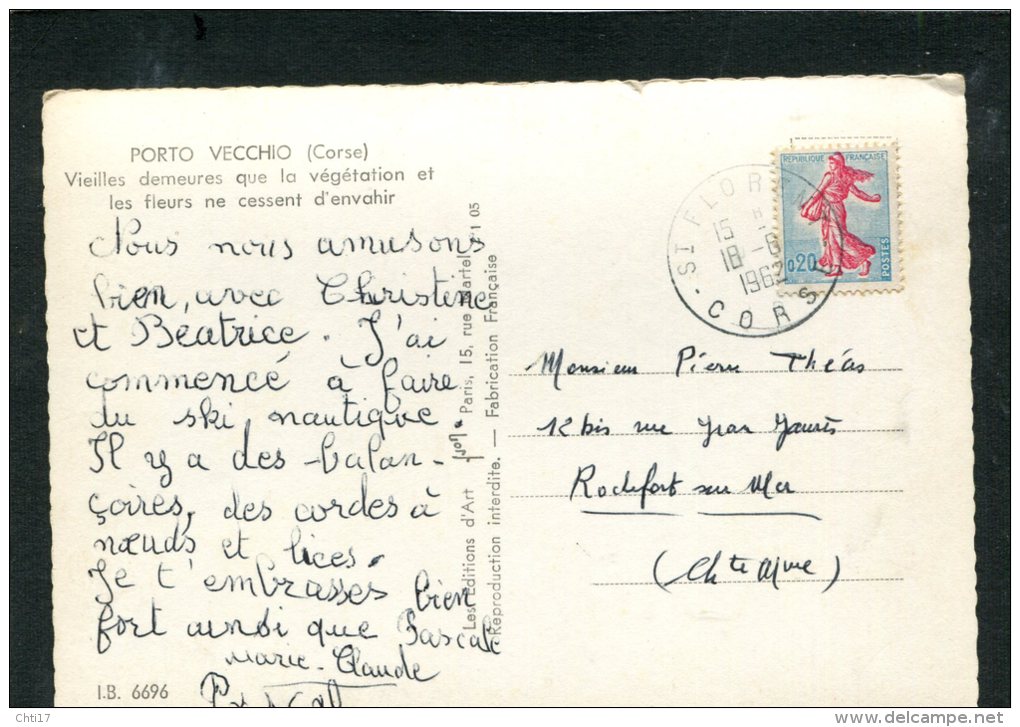 PORTO VECCHIO (Corse)
Vieilles demeures que la végétation et
les fleurs ne cessent d'envahir
Nous nous amusons
bien, avec Christine
et Béatrice. J'ai
commencé à faire
du ski nautique.
Il y a des balan-
çoires, des cordes à
nœuds et lices.
Je t'embrasses bien
fort ainsi que Pascale
Marie-Claude
Pascal
I.B. 6696
Les Editions d'Art Paris, 15, rue Martel 1 05
Reproduction interdite. — Fabrication Française
ST FLORENT
15 H
18-8
1962
CORSE
REPUBLIQUE FRANÇAISE
0,20
POSTES
Monsieur Pierre Théas
12 bis rue Jean Jaurès
Rochefort sur Mer
(Chte Mme)
Chti17
www.delcampe.net